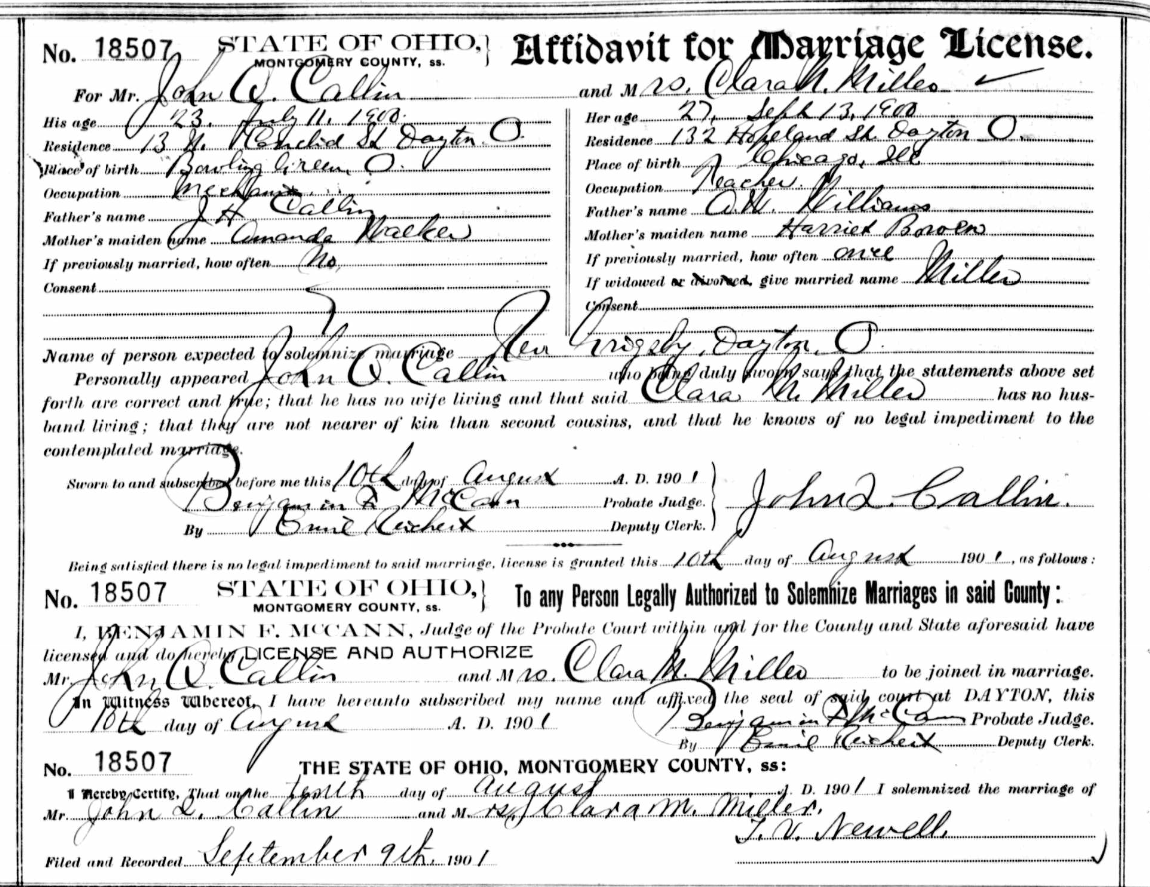 No. 18507 STATE OF OHIO, MONTGOMERY COUNTY, ss. } Affidavit for Marriage License.
For Mr. John Q. Callin and Mrs. Clara M. Miller ✓
His age 23, July 11, 1900. Her age 27, Sept 13, 1900
Residence 13 N. Euclid St Dayton O Residence 132 Hopeland St. Dayton O.
Place of birth Bowling Green, O. Place of birth Chicago, Ill
Occupation Mechanic Occupation Teacher.
Father's name J H Callin Father's name A.W. Williams
Mother's maiden name Amanda Walker Mother's maiden name Harriet Bowen
If previously married, how often No, If previously married, how often once
Consent If widowed or divorced, give married name Miller
Consent
Name of person expected to solemnize marriage Rev Grigsby, Dayton, O.
Personally appeared John Q. Callin who being duly sworn says that the statements above set
forth are correct and true; that he has no wife living and that said Clara M Miller has no hus-
band living; that they are not nearer of kin than second cousins, and that he knows of no legal impediment to the
contemplated marriage.
Sworn to and subscribed before me this 10th day of August A. D. 1901
Benjamin F McCann Probate Judge. } John Q. Callin.
By Emil Reichert Deputy Clerk.
Being satisfied there is no legal impediment to said marriage, license is granted this 10th day of August 1901, as follows:
No. 18507 STATE OF OHIO, MONTGOMERY COUNTY, ss. } To any Person Legally Authorized to Solemnize Marriages in said County:
I, BENJAMIN F. McCANN, Judge of the Probate Court within and for the County and State aforesaid have
licensed and do hereby LICENSE AND AUTHORIZE
Mr. John Q. Callin and Mrs. Clara M. Miller to be joined in marriage.
In Witness Whereof, I have hereunto subscribed my name and affixed the seal of said court at DAYTON, this
10th day of August A. D. 1901 Benjamin F McCann Probate Judge.
By Emil Reichert Deputy Clerk.
No. 18507 THE STATE OF OHIO, MONTGOMERY COUNTY, ss:
I Hereby Certify, That on the tenth day of August A. D. 1901 I solemnized the marriage of
Mr. John Q. Callin and Mrs. Clara M. Miller.
T. V. Newell.
Filed and Recorded September 9th, 1901